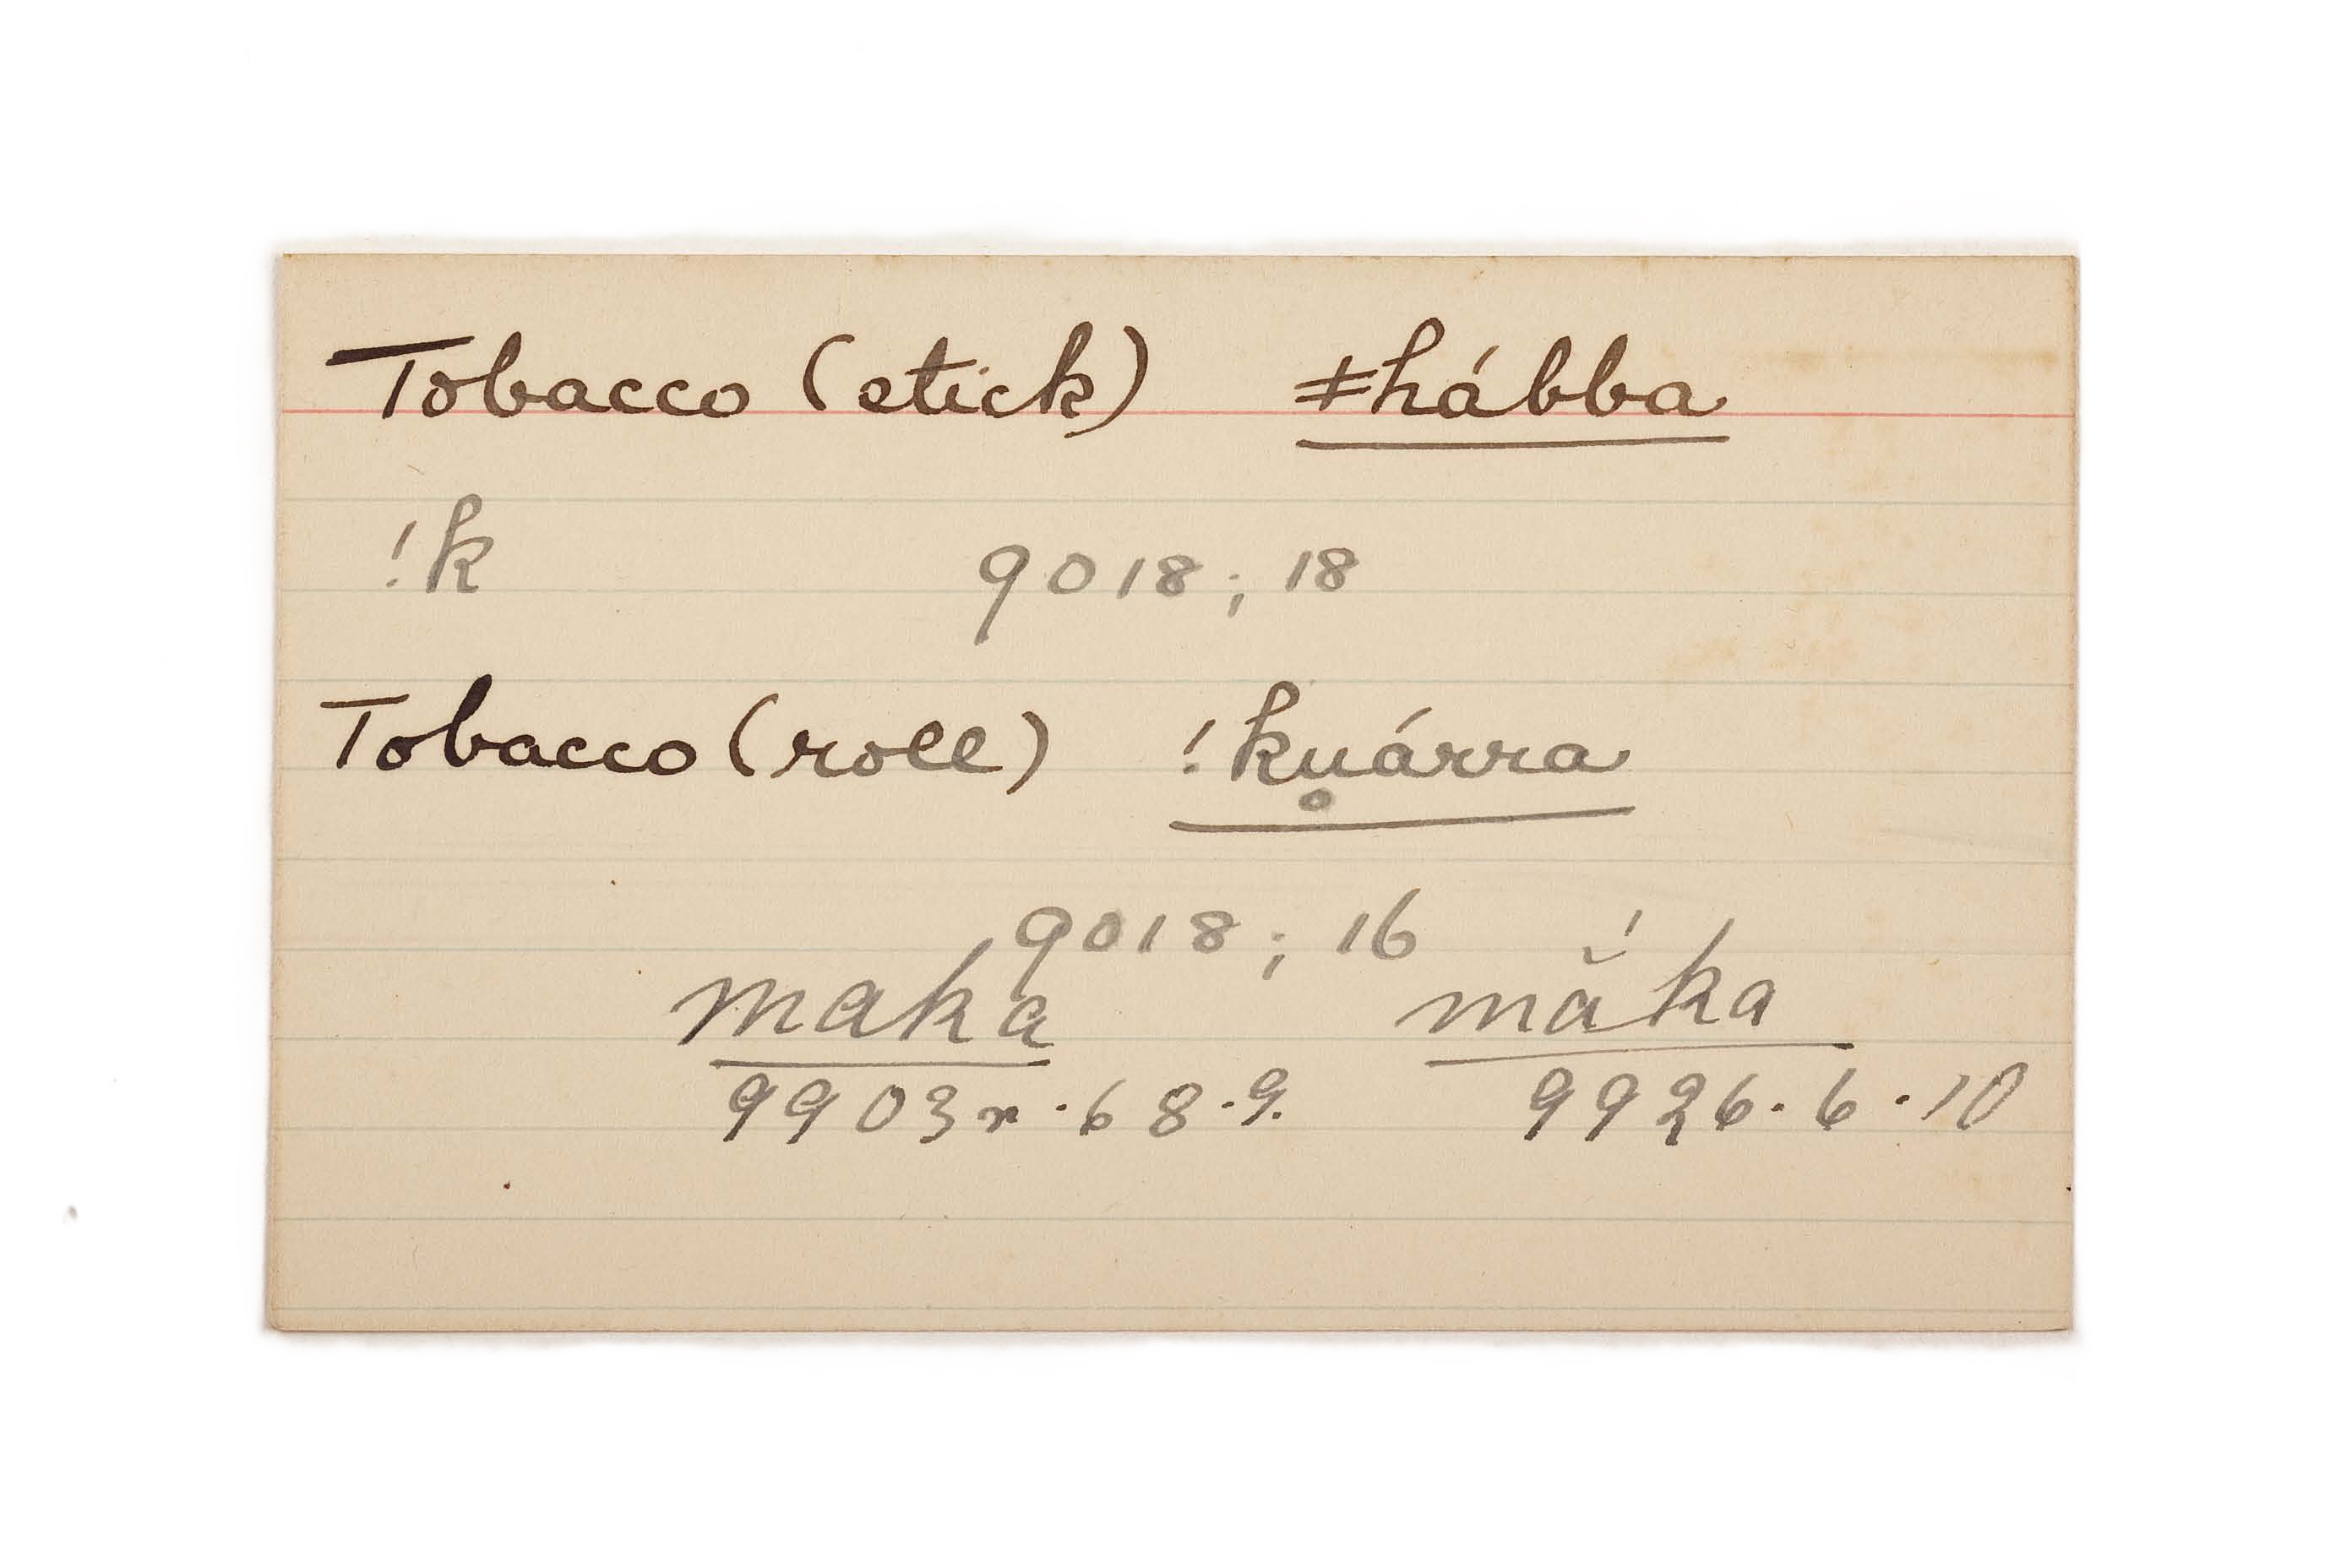 Tobacco (stick) ǂhábba
!k 9018; 18
Tobacco (roll) !ku̥árra
9018; 16
maka mắka
9903r.68.9. 9926.6.10